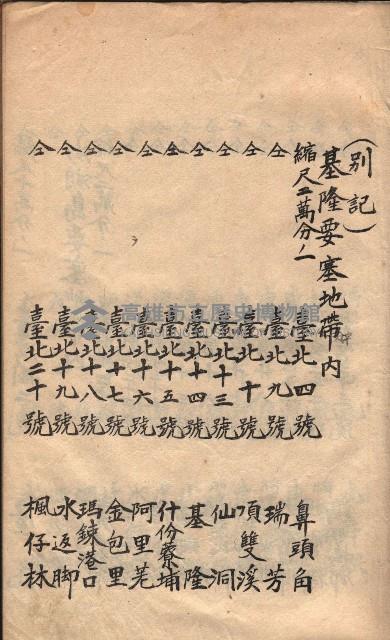 (別記)
基隆要塞地帶内
縮尺二萬分ノ一 臺北四號 鼻頭角
仝 臺北九號 瑞芳
仝 臺北十號 頂雙溪
仝 臺北十三號 仙洞
仝 臺北十四號 基隆
仝 臺北十五號 什份寮埔
仝 臺北十六號 阿里荖
仝 臺北十七號 金包里
仝 臺北十八號 瑪鍊港口
仝 臺北十九號 水返脚
仝 臺北二十號 楓仔林
高雄市立歷史博物館